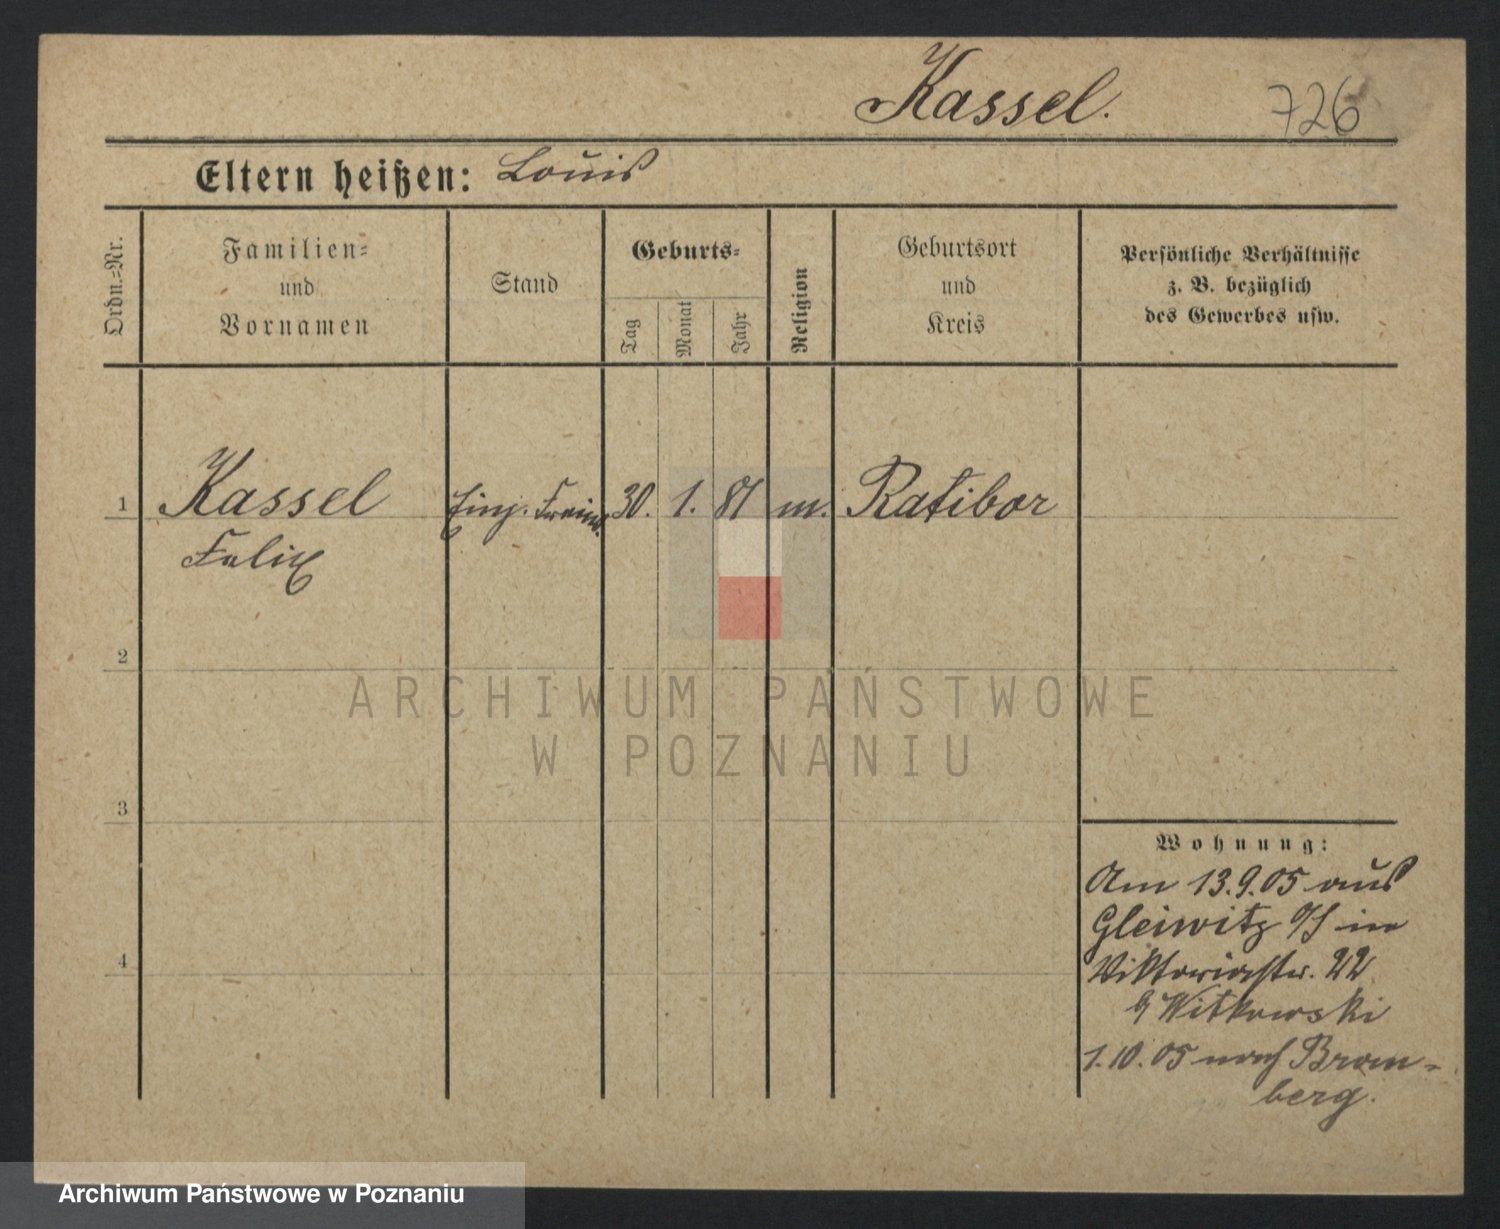 Kassel. 726
Eltern heißen: Louis
Ordn.-Nr.
Familien-
und
Vornamen
Stand
Geburts-
Tag
Monat
Jahr
Religion
Geburtsort
und
Kreis
Persönliche Verhältnisse
z. B. bezüglich
des Gewerbes usw.
1 Kassel Einj. Freiw. 30. 1. 81 m. Ratibor
Felix
2
ARCHIWUM PAŃSTWOWE
W POZNANIU
3
Wohnung:
Am 13.9.05 aus
Gleiwitz O/S in
Viktoriastr. 22
4
b/ Witkowski
1.10.05 nach Brom-
berg.
Archiwum Państwowe w Poznaniu